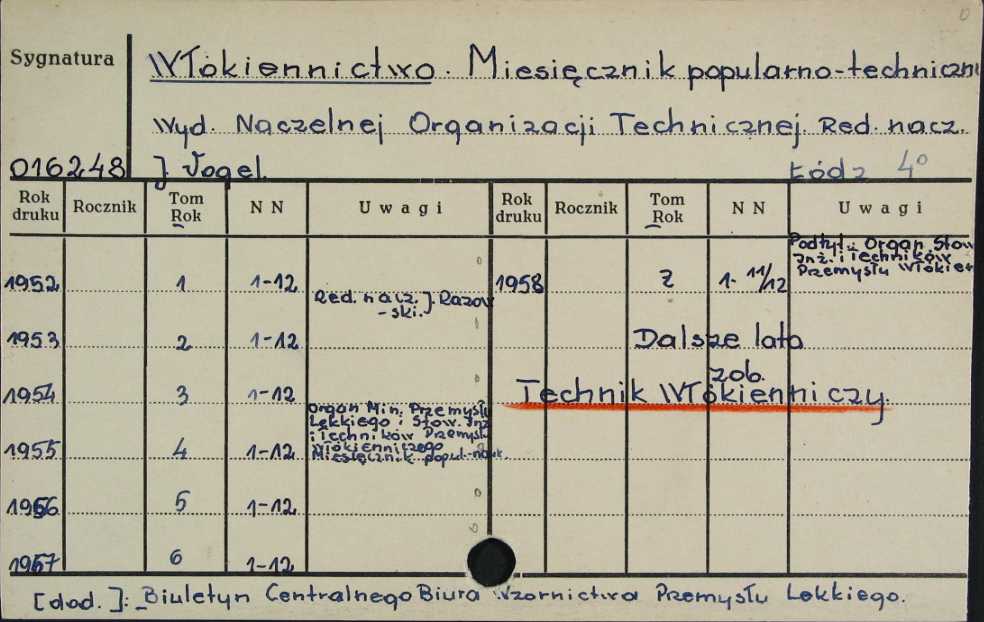 Sygnatura
Włókiennictwo. Miesięcznik popularno-techniczn
Wyd. Naczelnej Organizacji Technicznej. Red. nacz.
016248 J. Vogel. Łódz 4°
Rok druku Rocznik Tom Rok N N Uwagi Rok druku Rocznik Tom Rok N N Uwagi
Podtyt.: Organ Stow.
Inż. i Techników
Przemysłu Włókien
1952 1 1-12 1958 7 1-11/12
Red. nacz. J. Razow
-ski.
1953 2 1-12 Dalsze lata
zob.
1954 3 1-12 Technik Włókienniczy.
Organ Min. Przemysłu
Lekkiego i Stow. Inż
i Techników Przemysłu
1955 4 1-12 Włókienniczego
Miesięcznik popul.-nauk.
1956 5 1-12
1957 6 1-12
[dod.]: Biuletyn Centralnego Biura Wzornictwa Przemysłu Lekkiego.